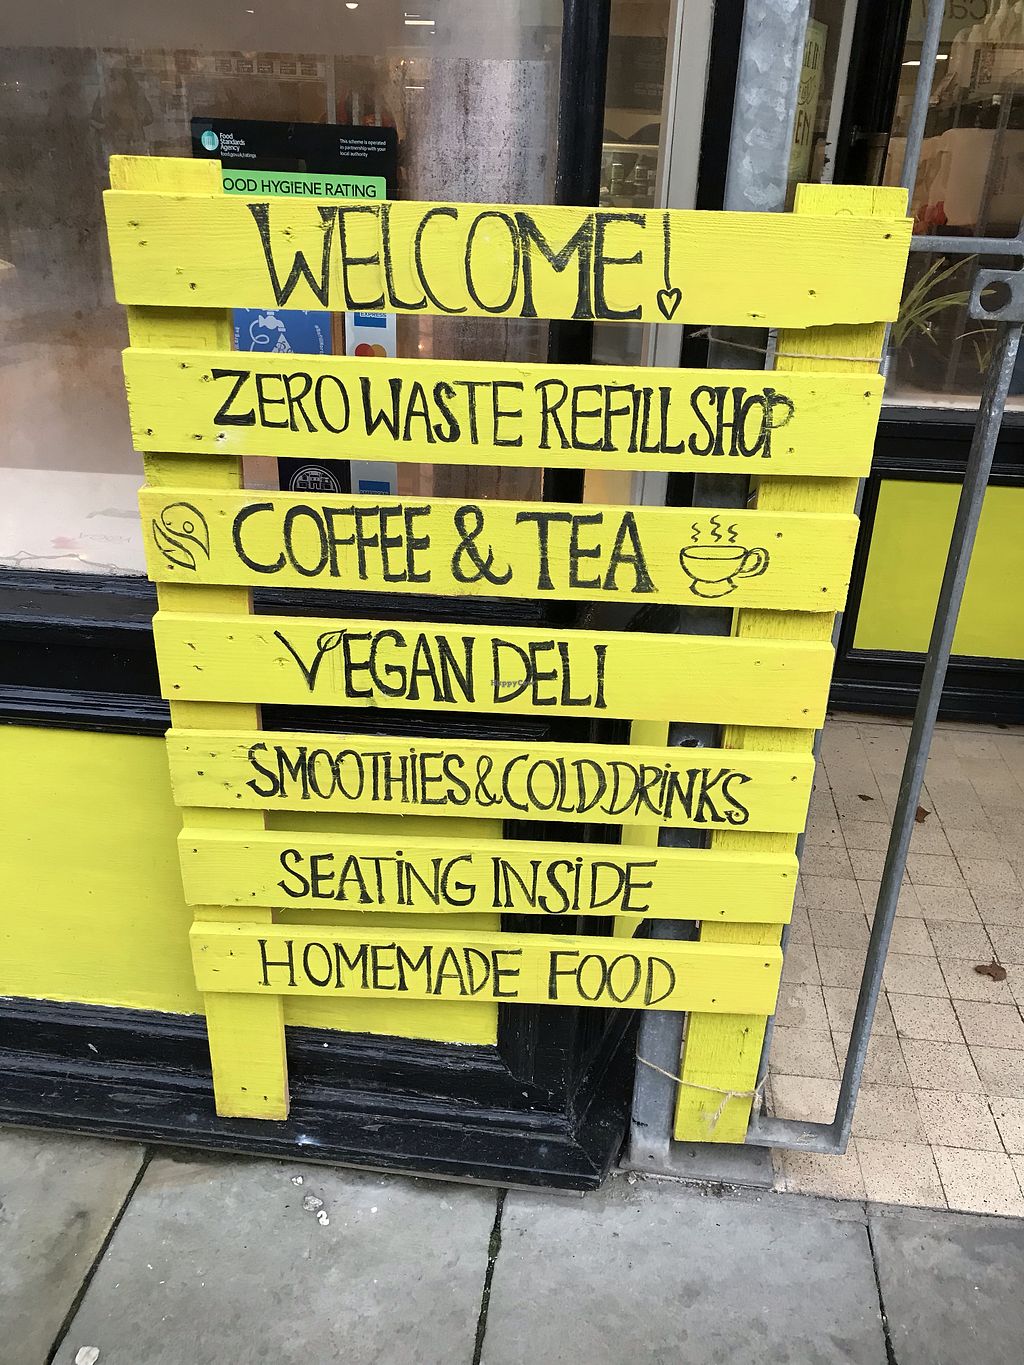 Food
Standards
Agency
food.gov.uk/ratings
This scheme is operated
in partnership with your
local authority
OOD HYGIENE RATING
WELCOME!
EXPRESS
ZERO WASTE REFILL SHOP
COFFEE & TEA
VEGAN DELI
HappyCow
SMOOTHiES & COLD DRiNKS
SEATiNG INSiDE
HOMEMADE FOOD